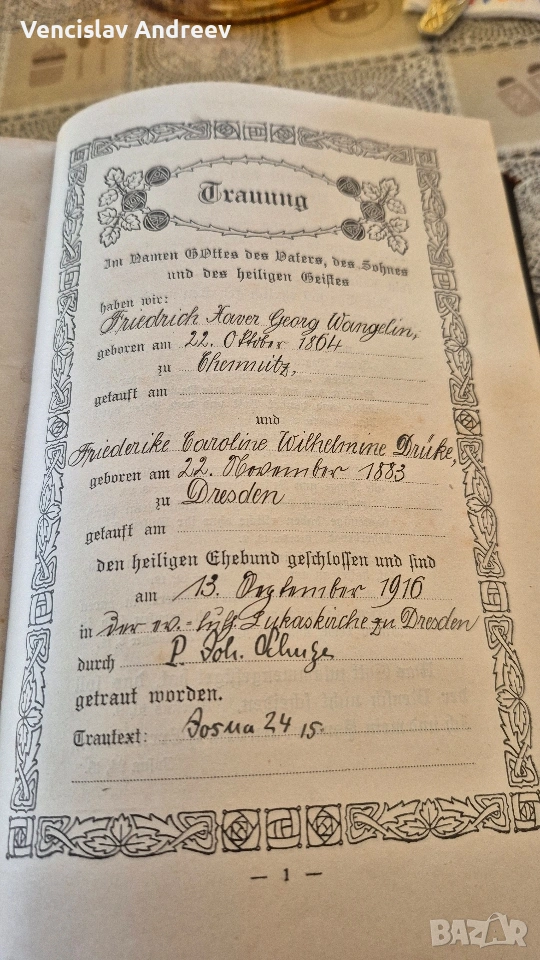 Vencislav Andreev
Trauung
Im Namen GOttes des Vaters, des Sohnes
und des heiligen Geistes
haben wir:
Friedrich Xaver Georg Wangelin,
geboren am 22. Oktober 1864
zu Chemnitz,
getauft am
und
Friederike Caroline Wilhelmine Drüke,
geboren am 22. November 1883
zu Dresden
getauft am
den heiligen Ehebund geschlossen und sind
am 13. September 1916
in der ev.-luth. Lukaskirche zu Dresden
durch P. Joh.
getraut worden.
Trautext: Josua 24 15.
— 1 —
BAZAR